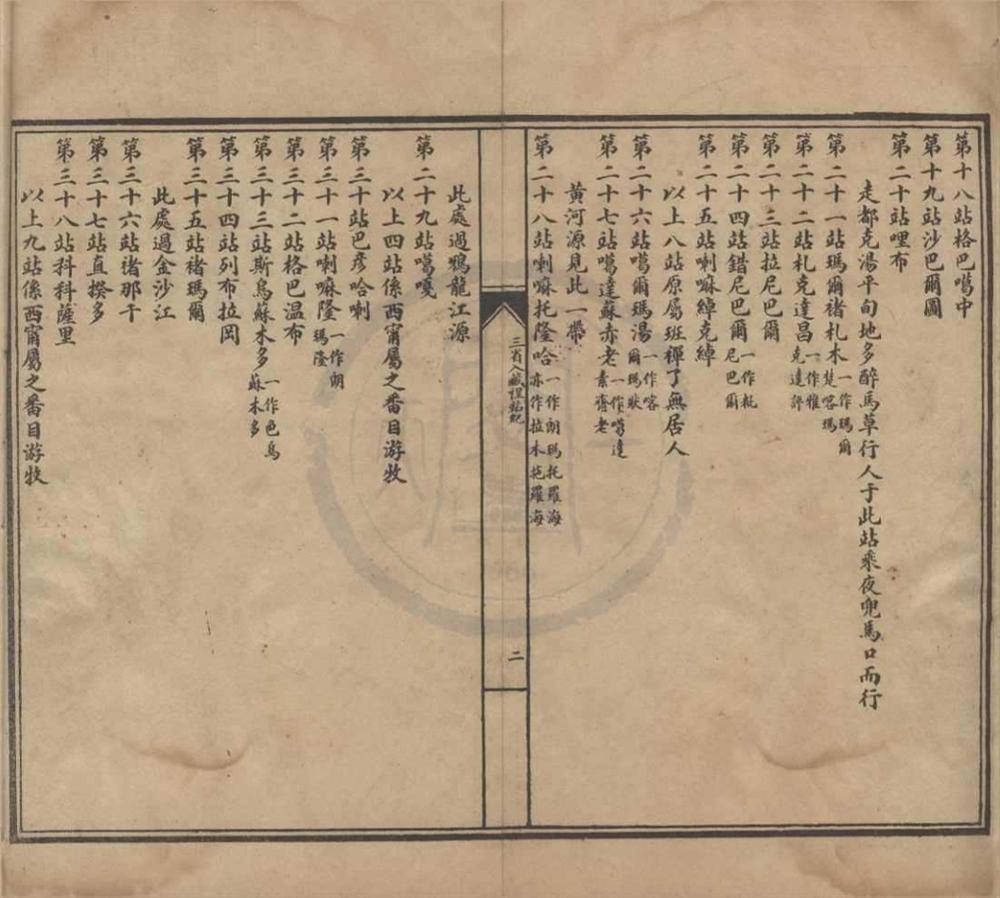 第十八站格巴噶中
第十九站沙巴爾圖
第二十站哩布
走都克湯平甸地多醉馬草行人于此站乘夜兜馬口而行
第二十一站瑪爾褚札木一作瑪爾楚喀瑪
第二十二站札克達昌一作雅克達評
第二十三站拉尼巴爾
第二十四站錯尼巴爾一作尼巴爾
第二十五站喇嘛綽克綽
以上八站原屬班禪丁無居人
第二十六站噶爾瑪湯一作喀爾瑪狀
第二十七站噶達蘇赤老一作噶達素齋老
黃河源見此一帶
第二十八站喇嘛托隆哈一作朗瑪托羅海亦作拉木托羅海
三省入藏程站紀
二
此處過鴉龍江源
第二十九站噶嗄
以上四站係西甯屬之番目游牧
第三十站巴彥哈喇
第三十一站喇嘛隆一作朗瑪隆
第三十二站格巴溫布
第三十三站斯烏蘇木多一作色烏蘇木多
第三十四站列布拉岡
第三十五站褚瑪爾
此處過金沙江
第三十六站褚那干
第三十七站直揆多
第三十八站科科薩里
以上九站係西甯屬之番目游牧